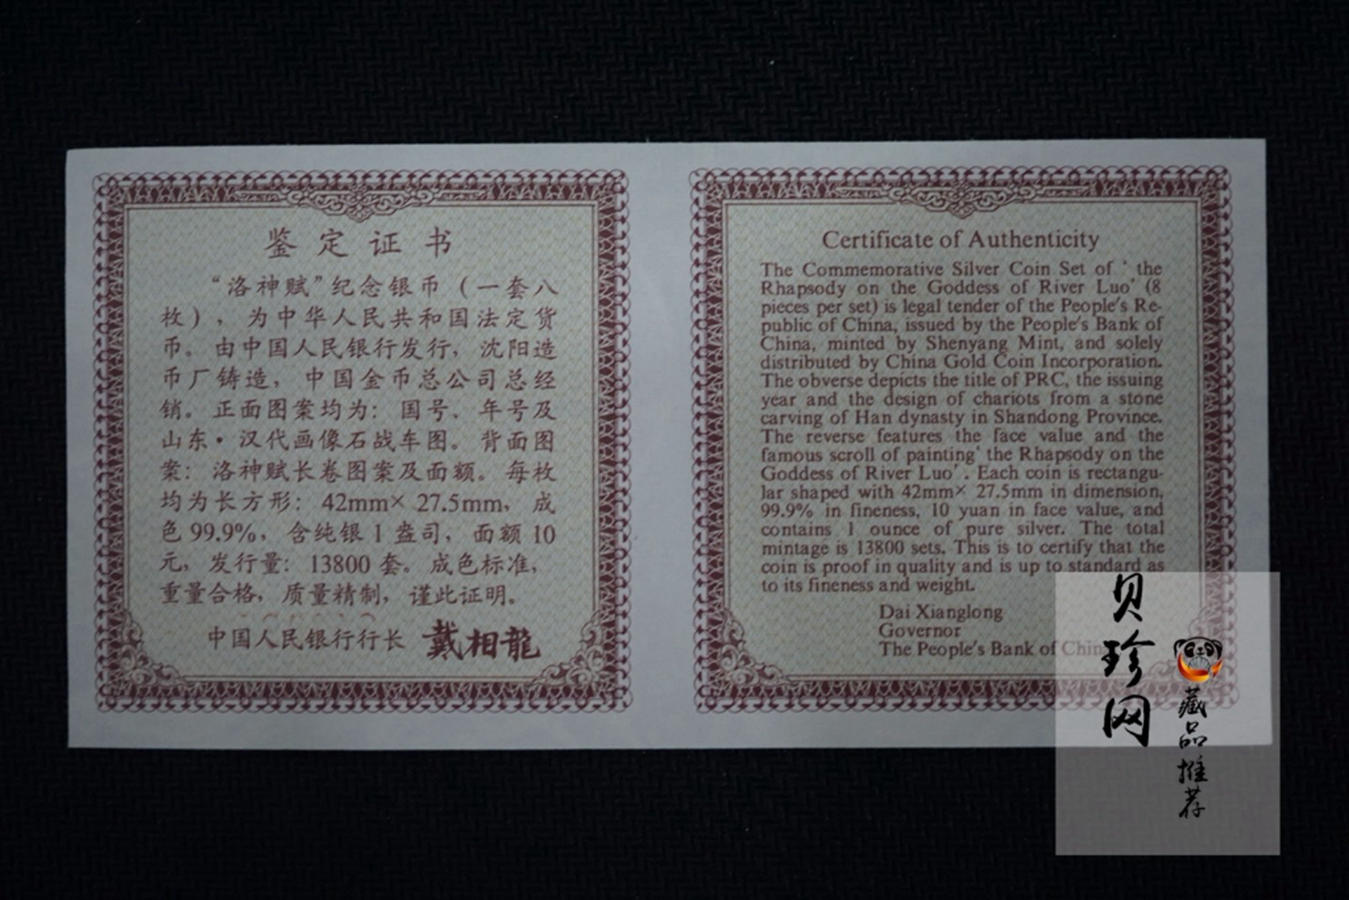 鉴定证书
“洛神赋”纪念银币（一套八
枚），为中华人民共和国法定货
币。由中国人民银行发行，沈阳造
币厂铸造，中国金币总公司总经
销。正面图案均为：国号、年号及
山东·汉代画像石战车图。背面图
案：洛神赋长卷图案及面额。每枚
均为长方形：42mm× 27.5mm，成
色 99.9%，含纯银 1 盎司，面额 10
元，发行量：13800 套。成色标准，
重量合格，质量精制，谨此证明。
中国人民银行行长 戴相龍
Certificate of Authenticity
The Commemorative Silver Coin Set of ‘ the
Rhapsody on the Goddess of River Luo’ (8
pieces per set) is legal tender of the People's Re-
public of China, issued by the People's Bank of
China, minted by Shenyang Mint, and solely
distributed by China Gold Coin Incorporation.
The obverse depicts the title of PRC, the issuing
year and the design of chariots from a stone
carving of Han dynasty in Shandong Province.
The reverse features the face value and the
famous scroll of painting‘ the Rhapsody on the
Goddess of River Luo’ . Each coin is rectangu-
lar shaped with 42mm× 27.5mm in dimension,
99.9% in fineness, 10 yuan in face value, and
contains 1 ounce of pure silver. The total
mintage is 13800 sets. This is to certify that the
coin is proof in quality and is up to standard as
to its fineness and weight.
Dai Xianglong
Governor
The People's Bank of China
贝珍网
藏品推荐